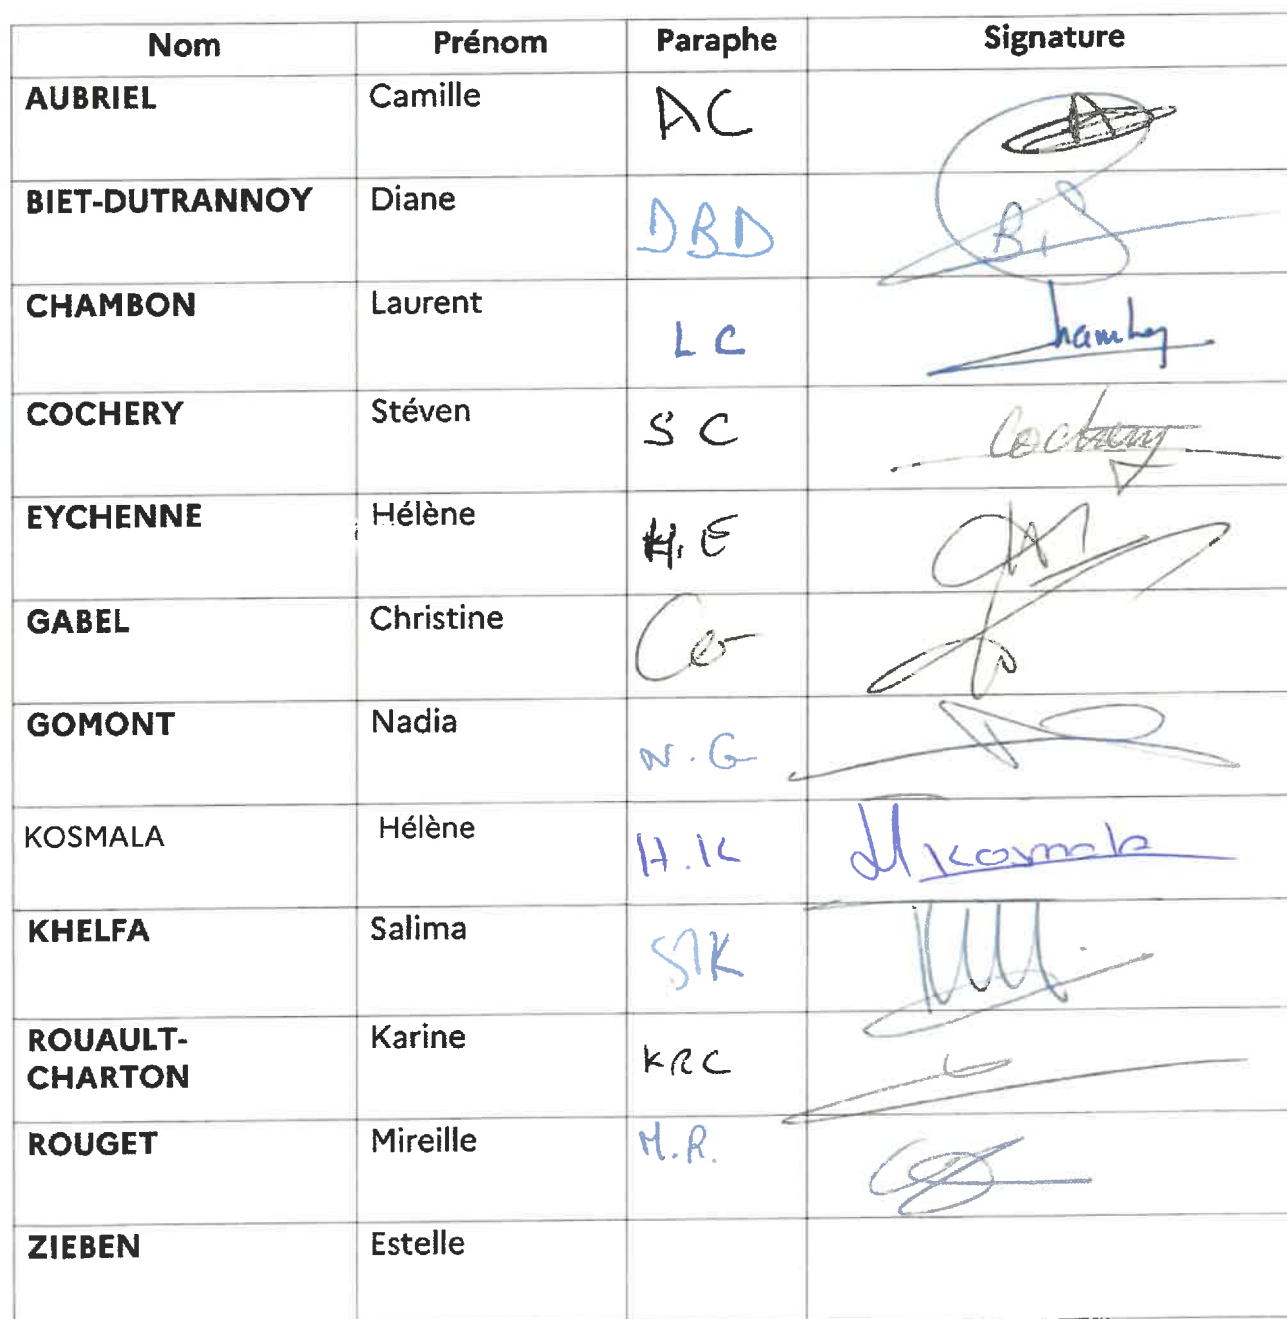 Nom Prénom Paraphe Signature
AUBRIEL Camille AC
BIET-DUTRANNOY Diane DBD
CHAMBON Laurent LC
COCHERY Stéven S C Cochery
EYCHENNE Hélène H.E
GABEL Christine
GOMONT Nadia N.G
KOSMALA Hélène H.K HKosmala
KHELFA Salima SK
ROUAULT- Karine KRC
CHARTON
ROUGET Mireille M.R.
ZIEBEN Estelle